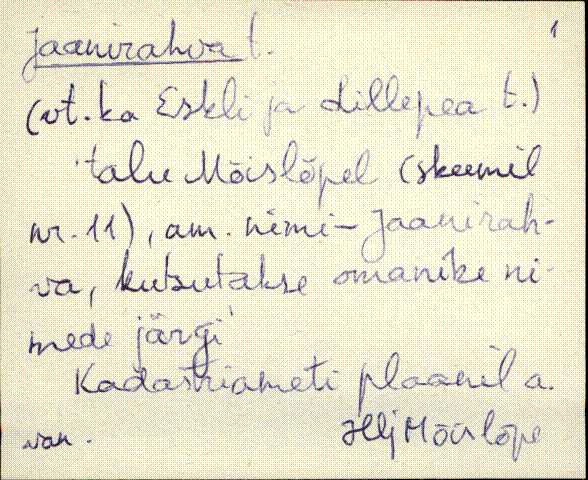 Jaanirahva t. 1
(vt. ka Eskli ja Lillepea t.)
'talu Mõislõpel (skeemil
nr. 11), am. nimi – Jaanirah-
va, kutsutakse omanike ni-
mede järgi'
Kadastriameti plaanil a.
van. HljMõislõpe